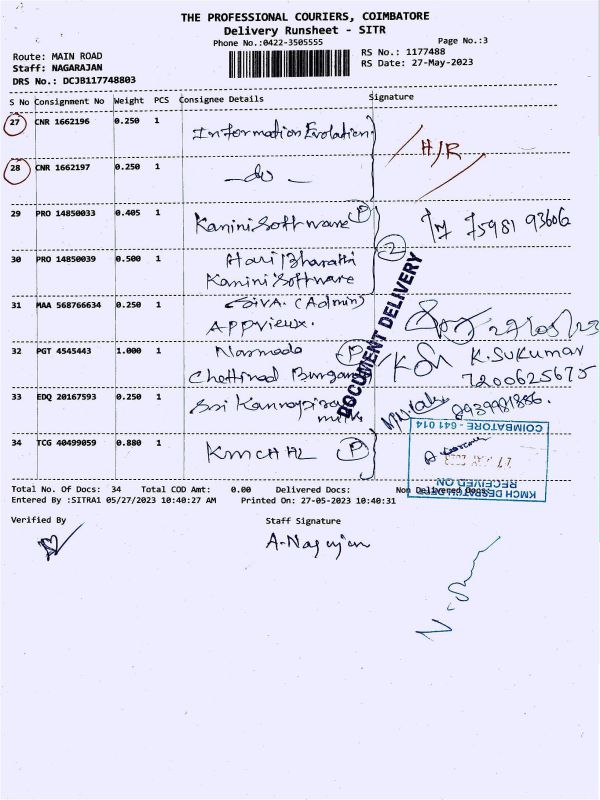 THE PROFESSIONAL COURIERS, COIMBATORE
Delivery Runsheet - SITR
Phone No.:0422-3505555
Page No.:3
Route: MAIN ROAD
Staff: NAGARAJAN
DRS No.: DCJB117748803
RS No.: 1177488
RS Date: 27-May-2023
S No Consignment No Weight PCS Consignee Details Signature
27 CNR 1662196 0.250 1 Information Evolation H/R
28 CNR 1662197 0.250 1 -do-
29 PRO 14850033 0.405 1 Kanini Software P 75981 93606
2
30 PRO 14850039 0.500 1 Hari Bharathi
Kanini Software
31 MAA 568766634 0.250 1 SIVA. (Admin)
APPviewx. 27/05/23
32 PGT 4545443 1.000 1 Narmada P K. SUKUMAR
Chettinad 7200625675
33 EDQ 20167593 0.250 1 Sri 8939981886.
34 TCG 40499059 0.880 1 KMCH HL P
DOCUMENT DELIVERY
COIMBATORE - 641 014
RECEIVED ON
KMCH DESPATCH DEPT
Total No. Of Docs: 34 Total COD Amt: 0.00 Delivered Docs: Non Delivered Docs:
Entered By :SITRA1 05/27/2023 10:40:27 AM Printed On: 27-05-2023 10:40:31
Verified By Staff Signature
A-Nagarajan